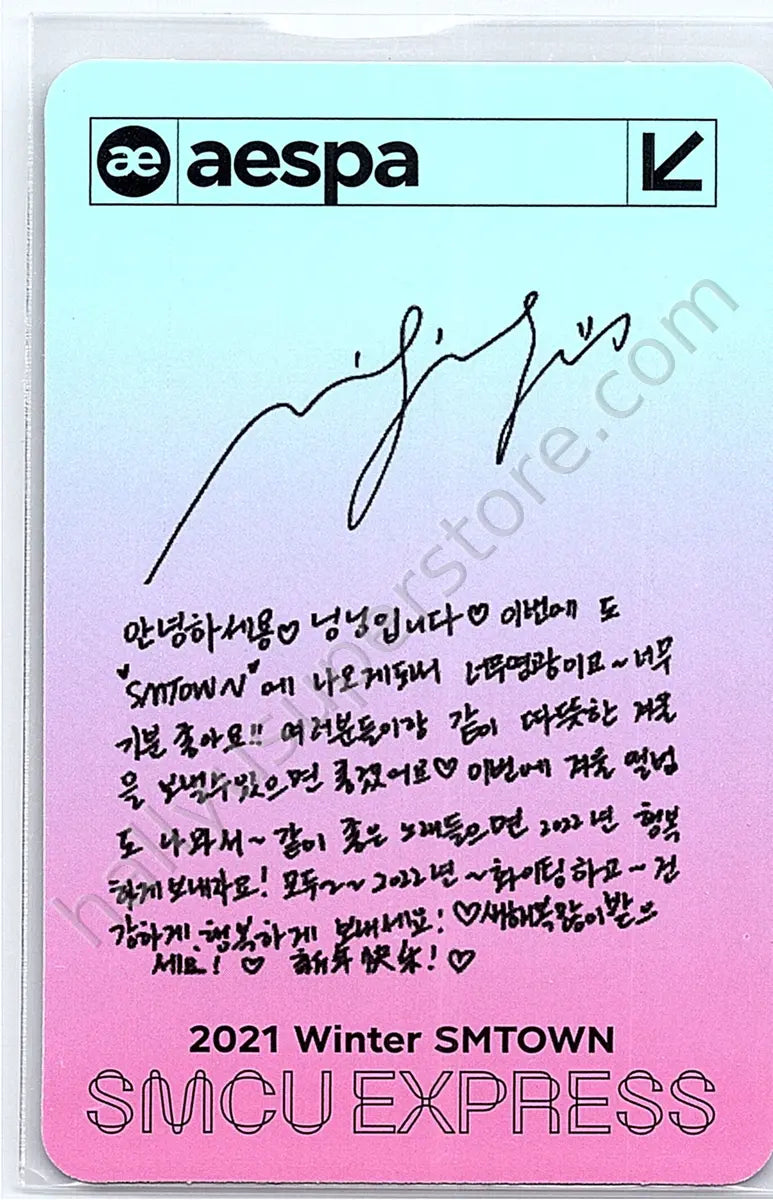 ae aespa
안녕하세용♡ 닝닝입니다♡ 이번에 도
"SMTOWN"에 나오게되서 너무영광이고~너무
기분 좋아요!! 여러분들이랑 같이 따뜻한 겨울
을 보낼수있으면 좋겠어요♡ 이번에 겨울 앨범
도 나와서~ 같이 좋은 노래들으면 2022년 행복
하게보내자요! 모두~~2022년~화이팅하고~건
강하게 행복하게 보내세요! ♡새해복많이받으
세요! ♡ 新年快乐! ♡
2021 Winter SMTOWN
SMCU EXPRESS
hallyusuperstore.com